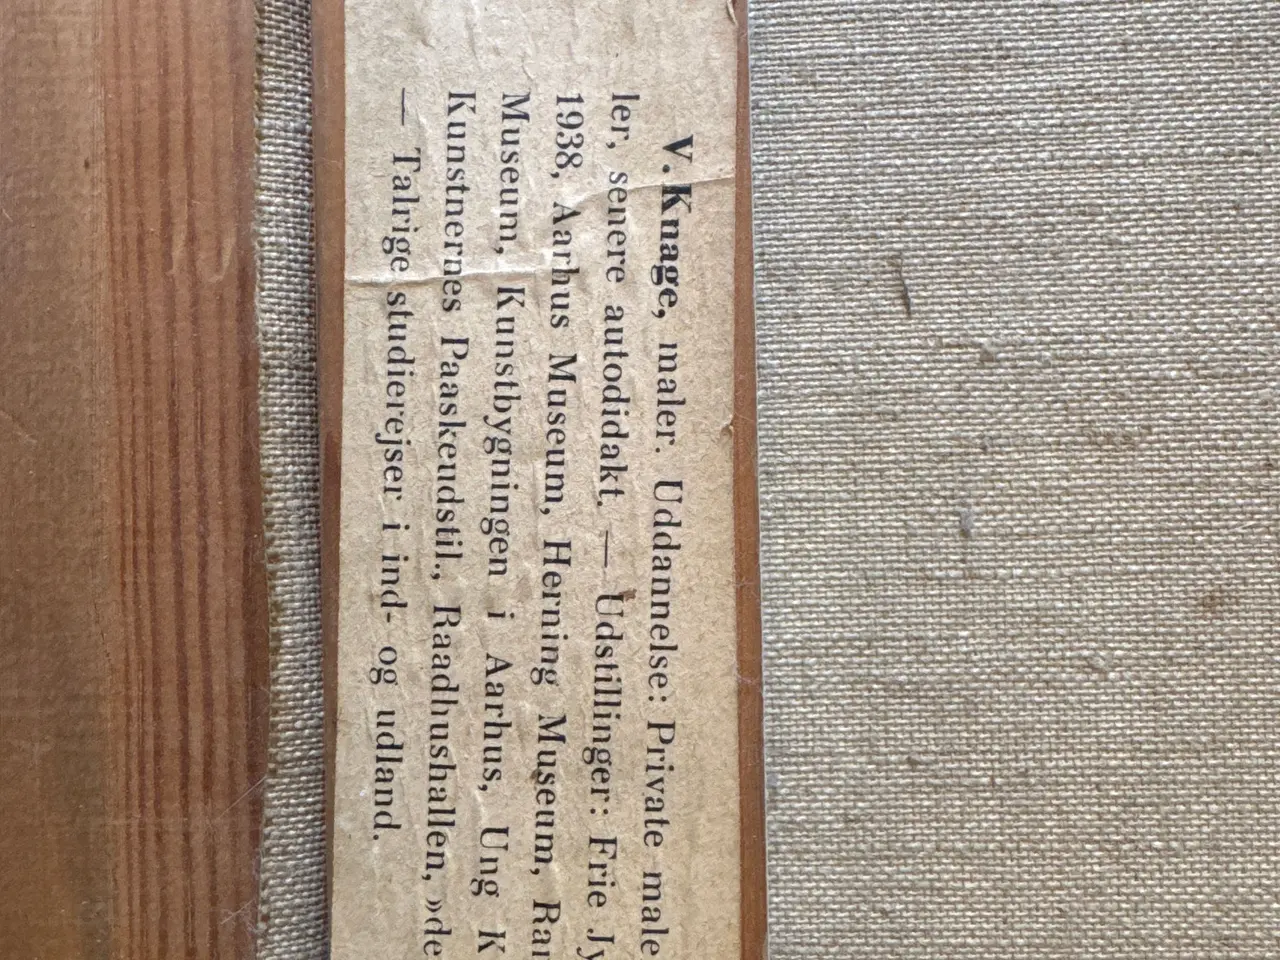 V. Knage, maler. Uddannelse: Private male
ler, senere autodidakt. — Udstillinger: Frie Jy
1938, Aarhus Museum, Herning Museum, Ran
Museum, Kunstbygningen i Aarhus, Ung K
Kunstnernes Paaskeudstil., Raadhushallen, »de
— Talrige studierejser i ind- og udland.